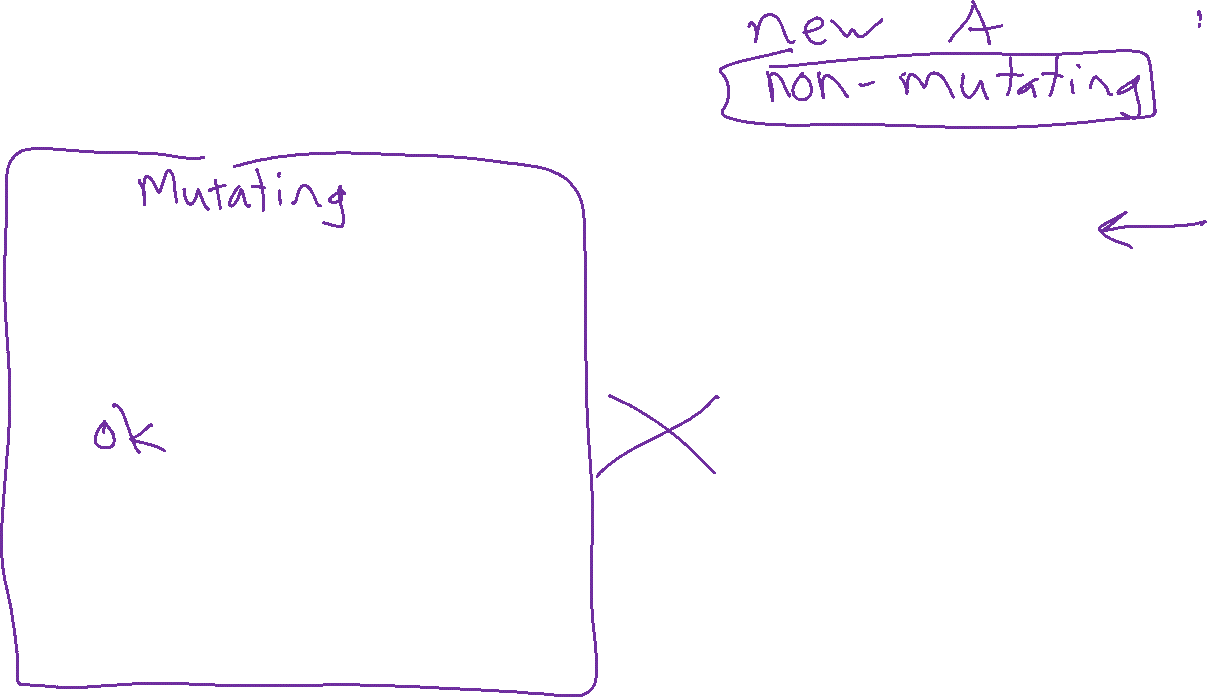 new A
non-mutating
Mutating
ok